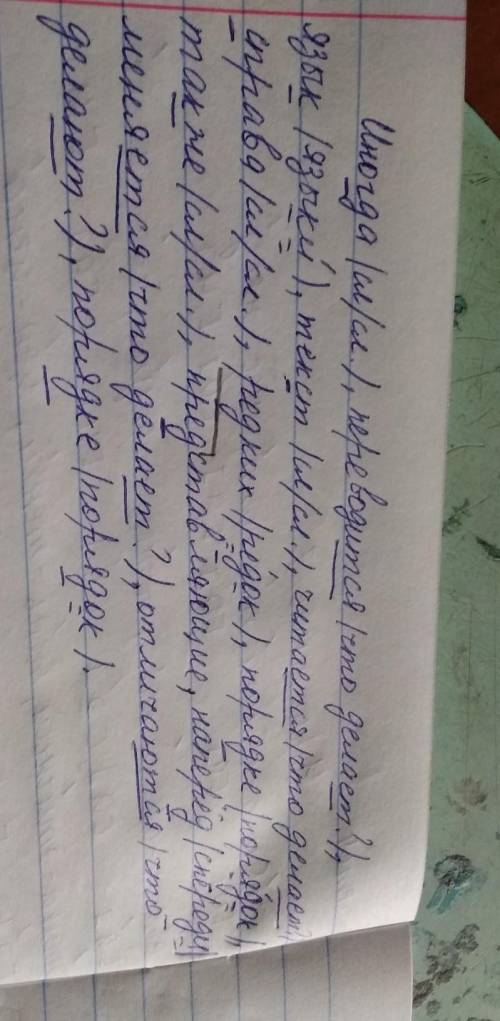 Иногда (сл/сл.), переводится (что делает?),
язык (языки), текст (сл/сл.), читается (что делает?)
справа (сл/сл.), редких (редок), порядке (порядок),
также (сл/сл.), представляющие, наперёд (спереди)
меняется (что делает?), отличаются (что
делают?), порядке (порядок).